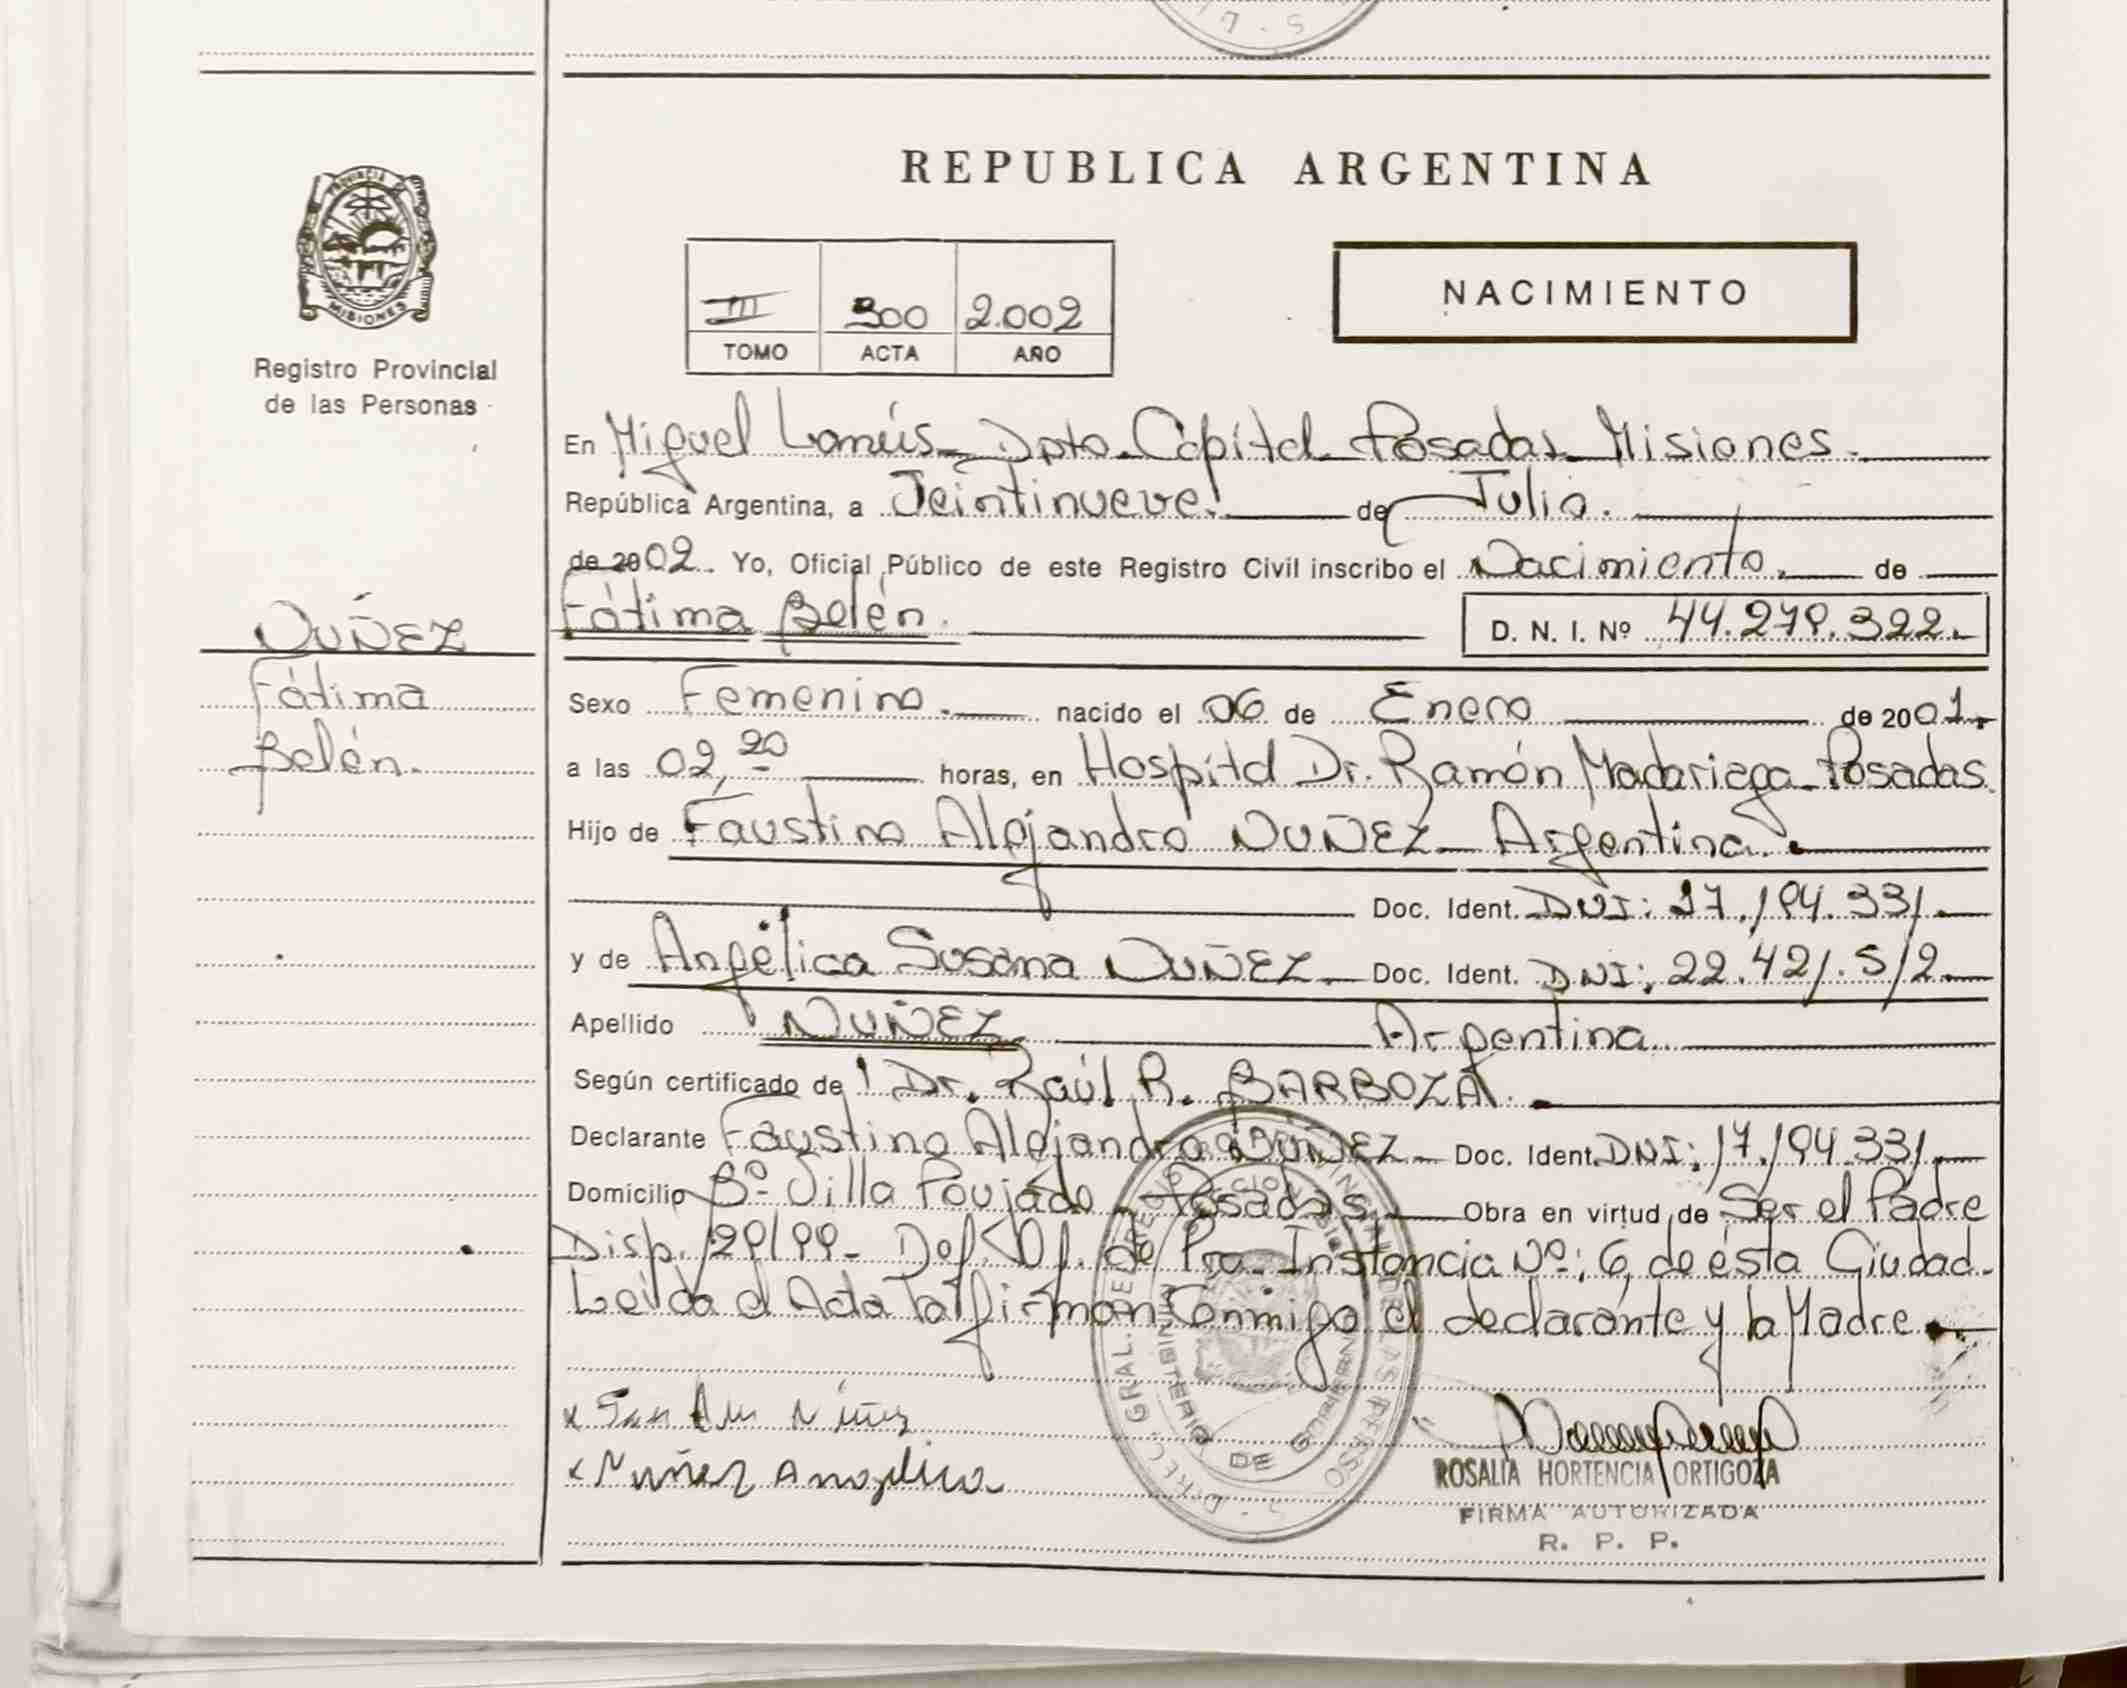 REPUBLICA ARGENTINA
PROVINCIA DE
MISIONES
Registro Provincial
de las Personas
III 300 2.002
TOMO ACTA AÑO
NACIMIENTO
En Miguel Lanús - Dpto. Capital - Posadas - Misiones.
República Argentina, a Veintinueve de Julio.
de 2002. Yo, Oficial Público de este Registro Civil inscribo el Nacimiento. de
Fátima Belén.
D. N. I. Nº 44.279.322.
NUÑEZ
Fátima
Belén.
Sexo Femenino. nacido el 06 de Enero de 2001.
a las 02,20 horas, en Hospital Dr. Ramón Madariaga - Posadas.
Hijo de Faustino Alejandro NUÑEZ - Argentina.
Doc. Ident. DNI: 17.194.331.
y de Angélica Susana NUÑEZ - Doc. Ident. DNI: 22.421.512
Apellido NUÑEZ Argentina.
Según certificado de Dr. Raúl R. BARBOZA.
Declarante Faustino Alejandro NUÑEZ - Doc. Ident. DNI: 17.194.331
Domicilio Bº Villa Poujade - Posadas. Obra en virtud de Ser el Padre
Disp. 29/99 - Def. Of. de Pra. Instancia Nº: 6, de ésta Ciudad.
Leída el Acta la firman Conmigo el declarante y la Madre.
x Nuñez Angelica
ROSALIA HORTENCIA ORTIGOZA
FIRMA AUTORIZADA
R. P. P.
MINISTERIO DE GOBIERNO